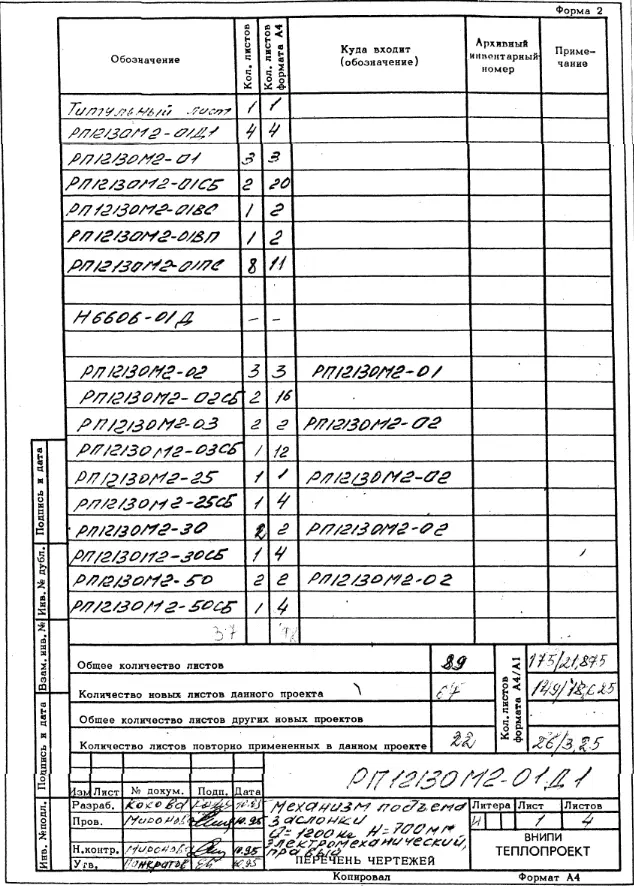 Форма 2
Обозначение Кол. листов Кол. листов формата А4 Куда входит (обозначение) Архивный инвентарный номер Примечание
Титульный лист 1 1
РП12130М2-01Д1 4 4
РП12130М2-01 3 3
РП12130М2-01СБ 2 20
РП12130М2-01ВС 1 2
РП12130М2-01ВП 1 2
РП12130М2-01ПС 8 11
Н6606-01Д - -
РП12130М2-02 3 3 РП12130М2-01
РП12130М2-02СБ 2 16
РП12130М2-03 2 2 РП12130М2-02
РП12130М2-03СБ 1 12
РП12130М2-25 1 1 РП12130М2-02
РП12130М2-25СБ 1 4
РП12130М2-30 2 2 РП12130М2-02
РП12130М2-30СБ 1 4
РП12130М2-50 2 2 РП12130М2-02
РП12130М2-50СБ 1 4
37
Общее количество листов 89 Кол. листов формата А4/А1 175/21,875
Количество новых листов данного проекта 67 149/18,625
Общее количество листов других новых проектов
Количество листов повторно примененных в данном проекте 22 26/3,25
РП12130М2-01Д1
Изм Лист № докум. Подп. Дата
Разраб. 10.95 Механизм подъема Литера Лист Листов
Пров. Миронова 10.95 заслонки И 1 4
Q=1200кг Н=700мм
Н.контр. Миронова 10.95 электромеханический, ВНИПИ
правый ТЕПЛОПРОЕКТ
Утв. Панкратов 10.95 ПЕРЕЧЕНЬ ЧЕРТЕЖЕЙ
Копировал Формат А4
Инв. № подл.
Подпись и дата
Взам. инв. №
Инв. № дубл.
Подпись и дата